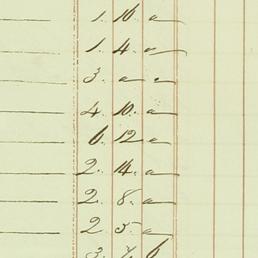 1. 16. a
1. 4. a
3. a a
4. 10. a
6. 12 a
2. 14. a
2. 8. a
2 5. a
3. 7. 6